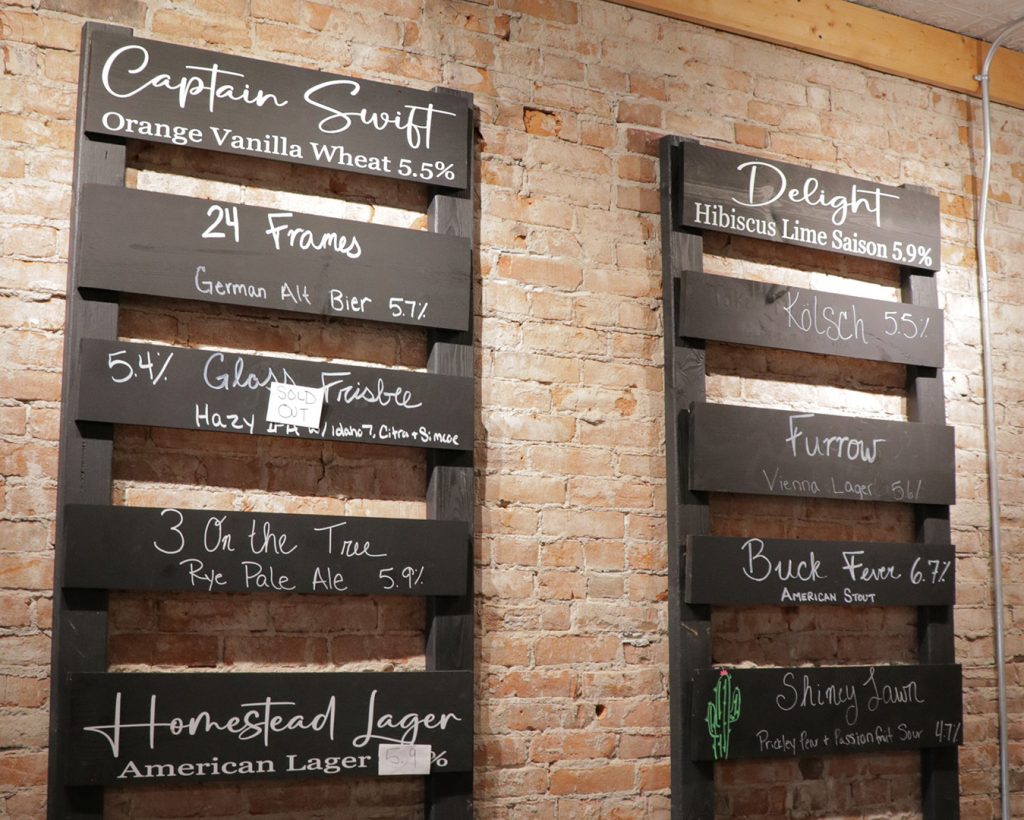 Captain Swift
Orange Vanilla Wheat 5.5%
24 Frames
German Alt Bier 5.7%
5.4% Glass Frisbee
SOLD
OUT
Hazy IPA w/ Idaho 7, Citra + Simcoe
3 On the Tree
Rye Pale Ale 5.9%
Homestead Lager
American Lager 5.9 %
Delight
Hibiscus Lime Saison 5.9%
Kölsch 5.5%
Furrow
Vienna Lager 5.6%
Buck Fever 6.7%
AMERICAN STOUT
Shiney Lawn
Prickley Pear + Passionfruit Sour 4.7%